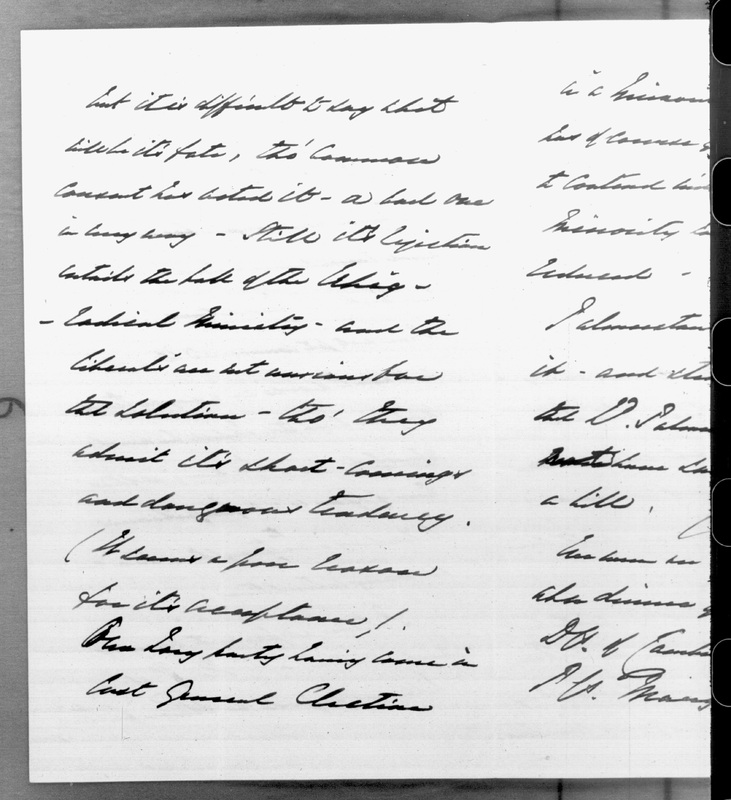 but it is difficult to say what
will be it's fate, tho' Common
consent has voted it - a bad one
in every way - Still it's rejection
entails the fall of the Whig -
- Radical Ministry - and the
Liberals are not anxious for
the Solution - tho' they
admit it's short-comings
and dangerous tendency.
(It seems a poor reason
for it's acceptance)!.
Our Tory party having come in
last General Election
in a Minori
has of course
to contend
Minority
reduced -
Palmerston
it - and
the Ld. Palm
have
a bill.
dinner
Ds. of Camb
Ps. Mary